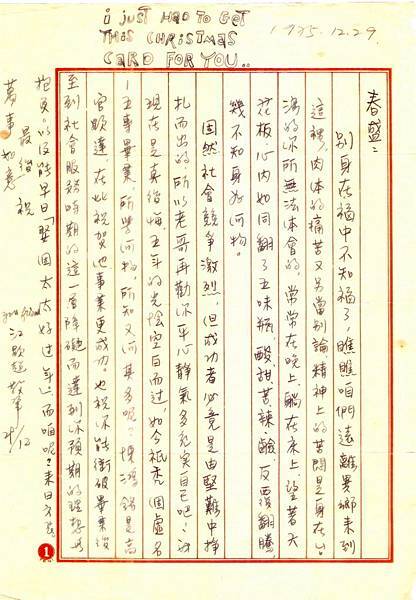 i JUST HAD TO GET
THIS CHRISTMAS
CARD FOR YOU..
1975.12.29.
春盛：
別身在福中不知福了，瞧瞧咱們遠離異鄉來到
這裡，肉体的痛苦又另當別論精神上的苦悶是身在台
灣的你所無法体會的，常常在晚上，躺在床上，望著天
花板，心內如同翻了五味瓶，酸甜苦辣鹹，反覆翻騰，
幾不知身如何物。
固然社會競爭激烈，但成功者必竟是由堅難中掙
扎而出的，所以老哥再勸你平心靜氣多充实自己吧！
現在是真後悔，五年的光陰空白而过，如今祇 個虛名
—五專畢業，所學何物，所知又何其多呢？ 鴻錦是高
官顯達，在此祝賀他事業更成功。也祝你能衝破畢業後
至到社會服務時期的這一層障礙而達到你預期的理想與
抱負。以及能早日「娶個太太好过年」。而咱呢？來日方長
最後祝
萬事如意
江
1